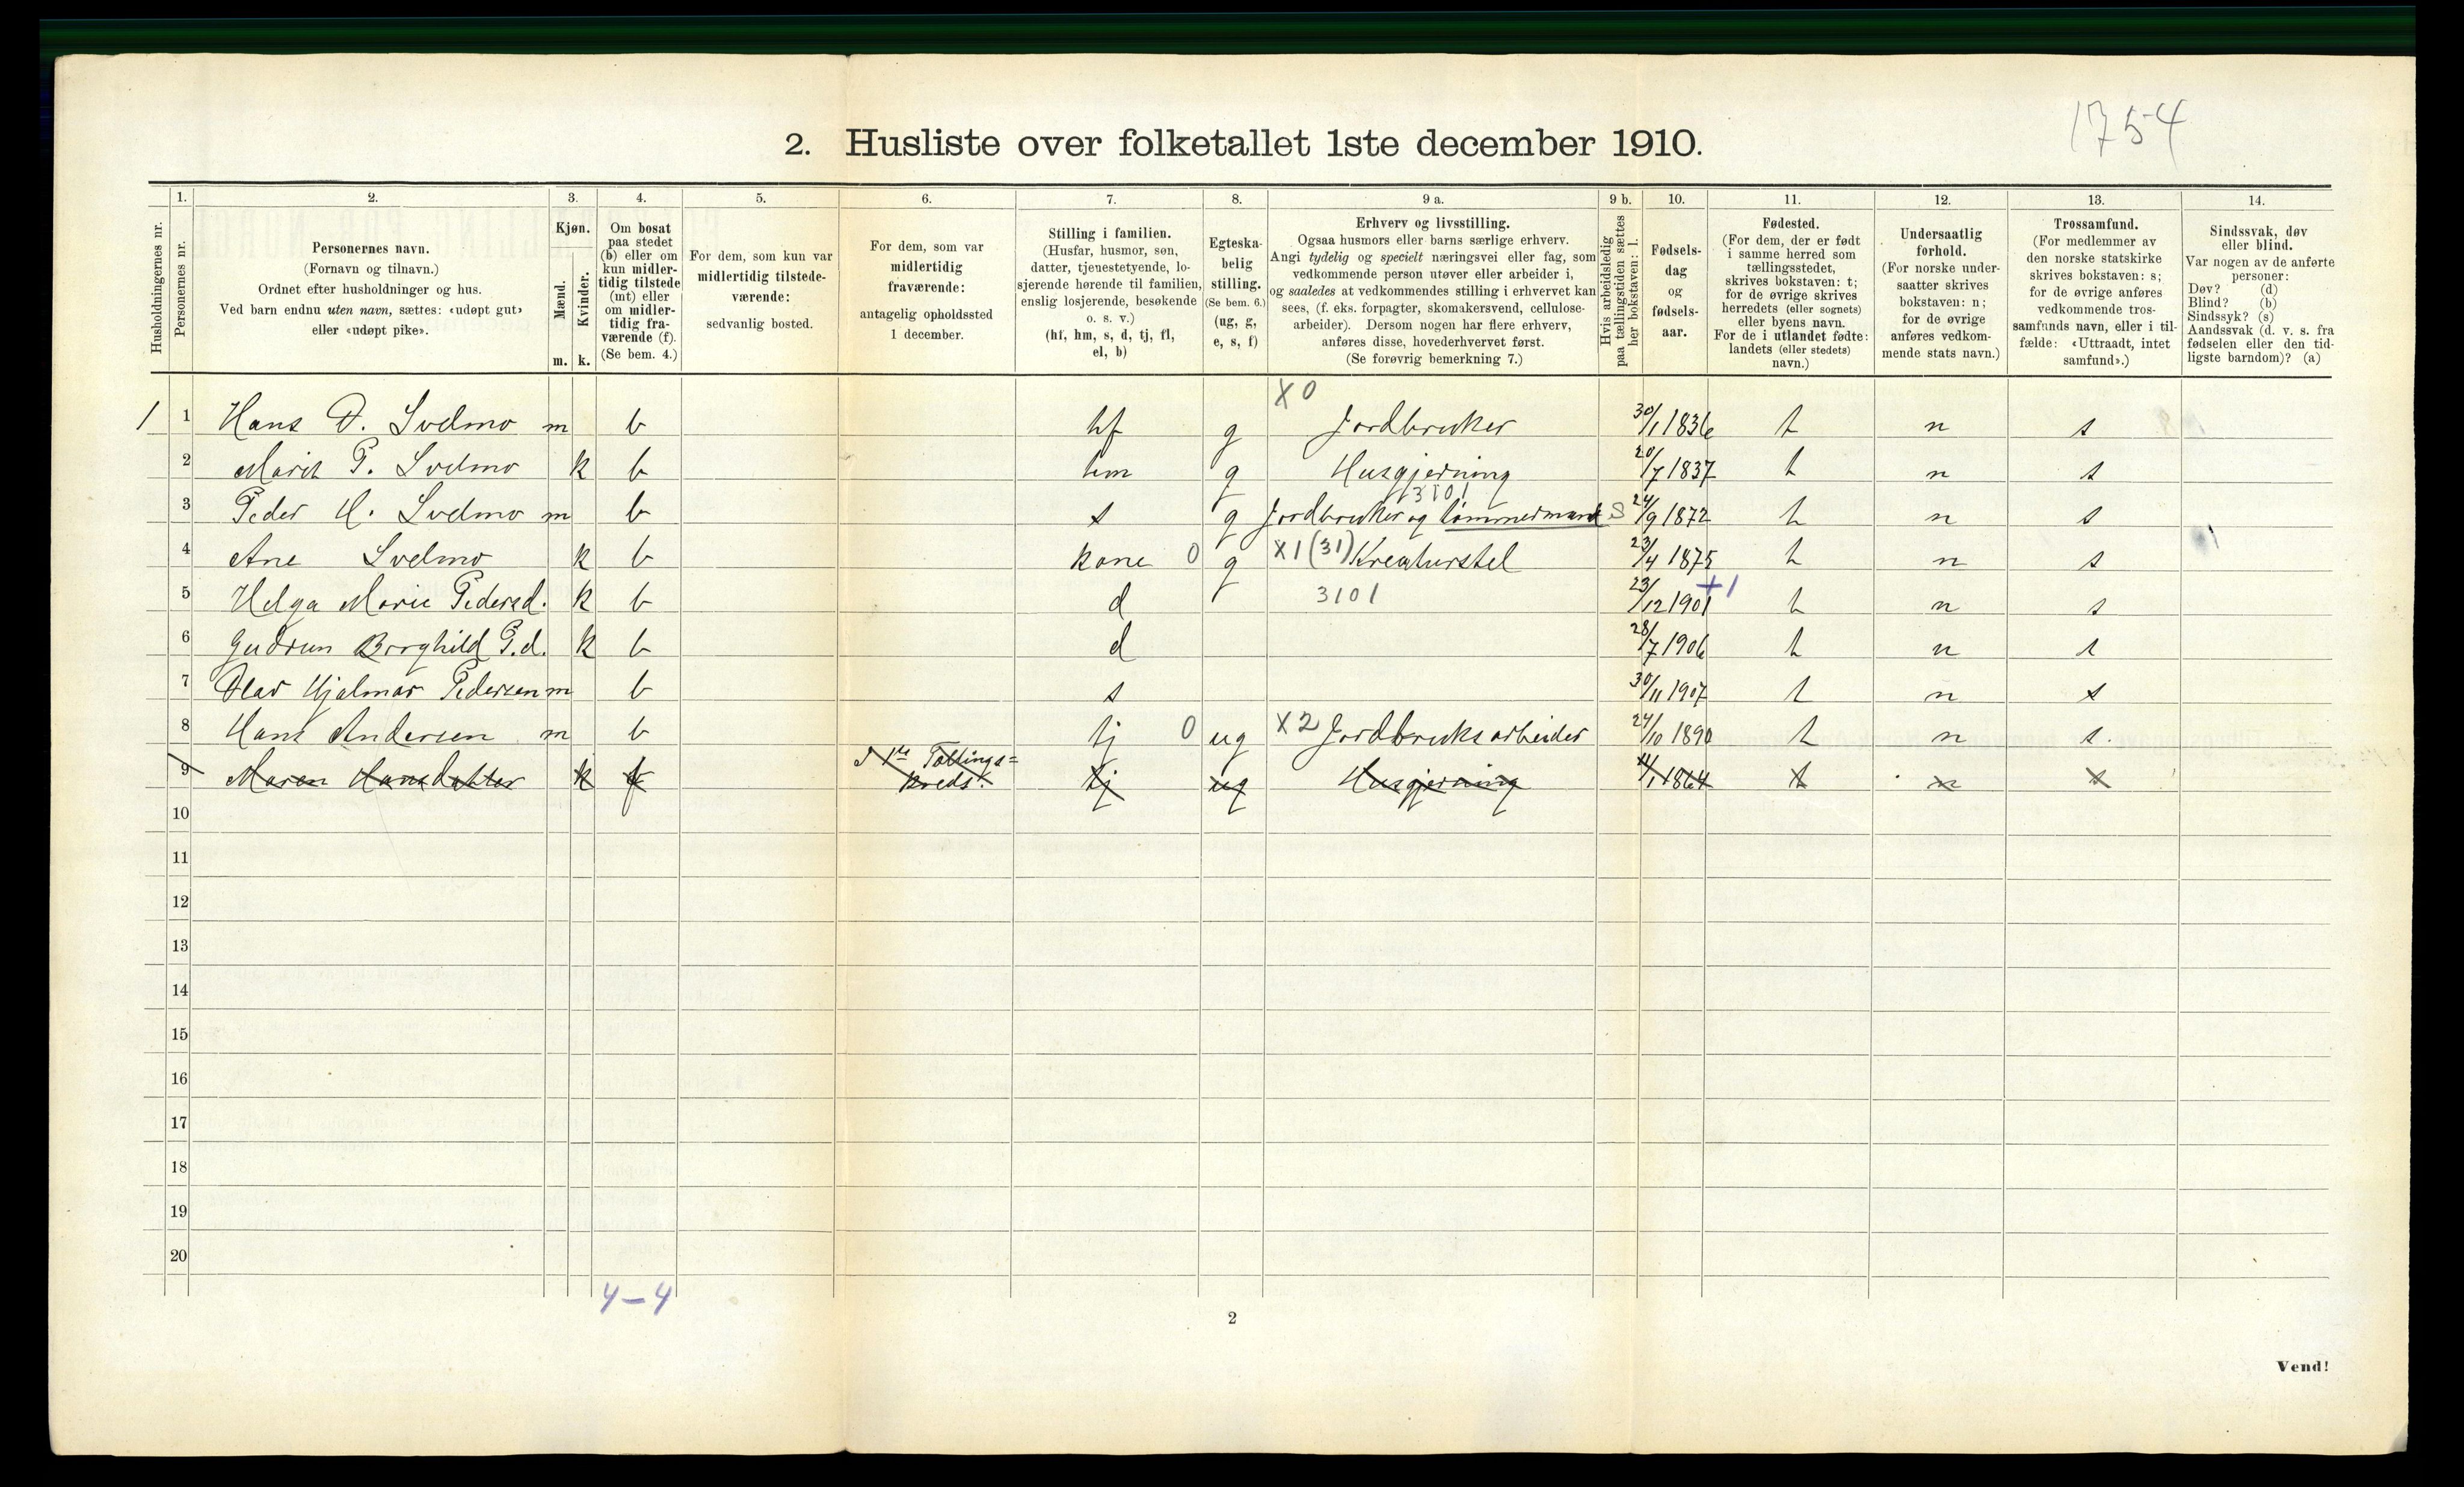 1754
2. Husliste over folketallet 1ste december 1910.
Husholdningernes nr.
1. Personernes nr.
2. Personernes navn. (Fornavn og tilnavn.) Ordnet efter husholdninger og hus. Ved barn endnu uten navn, sættes: «udøpt gut» eller «udøpt pike».
3. Kjøn. Mænd. m. Kvinder. k.
4. Om bosat paa stedet (b) eller om kun midlertidig tilstede (mt) eller om midlertidig fraværende (f). (Se bem. 4.)
5. For dem, som kun var midlertidig tilstedeværende: sedvanlig bosted.
6. For dem, som var midlertidig fraværende: antagelig opholdssted 1 december.
7. Stilling i familien. (Husfar, husmor, søn, datter, tjenestetyende, losjerende hørende til familien, enslig losjerende, besøkende o. s. v.) (hf, hm, s, d, tj, fl, el, b)
8. Egteskabelig stilling. (Se bem. 6.) (ug, g, e, s, f)
9 a. Erhverv og livsstilling. Ogsaa husmors eller barns særlige erhverv. Angi tydelig og specielt næringsvei eller fag, som vedkommende person utøver eller arbeider i, og saaledes at vedkommendes stilling i erhvervet kan sees, (f. eks. forpagter, skomakersvend, cellulosearbeider). Dersom nogen har flere erhverv, anføres disse, hovederhvervet først. (Se forøvrig bemerkning 7.)
9 b. Hvis arbeidsledig paa tællingstiden sættes her bokstaven: l.
10. Fødselsdag og fødselsaar.
11. Fødested. (For dem, der er født i samme herred som tællingsstedet, skrives bokstaven: t; for de øvrige skrives herredets (eller sognets) eller byens navn. For de i utlandet fødte: landets (eller stedets) navn.)
12. Undersaatlig forhold. (For norske undersaatter skrives bokstaven: n; for de øvrige anføres vedkommende stats navn.)
13. Trossamfund. (For medlemmer av den norske statskirke skrives bokstaven: s; for de øvrige anføres vedkommende trossamfunds navn, eller i tilfælde: «Uttraadt, intet samfund».)
14. Sindssvak, døv eller blind. Var nogen av de anførte personer: Døv? (d) Blind? (b) Sindssyk? (s) Aandssvak (d. v. s. fra fødselen eller den tidligste barndom)? (a)
X 0
1 1 Hans O. Svelmo m b hf g Jordbruker 30/1 1836 t n s
2 Marit P. Svelmo k b hm g Husgjerning 20/7 1837 t n s
3101
3 Peder H. Svelmo m b s g Jordbruker og tømmermand S 24/9 1872 t n s
4 Ane Svelmo k b kone 0 g X1 (31) Kreaturstel 23/4 1875 t n s
5 Helga Marie Pedersd. k b d 3101 23/12 1901 +1 t n s
6 Gudrun Borghild P.d. k b d 28/7 1906 t n s
7 Olav Hjalmar Pedersen m b s 30/11 1907 t n s
8 Hans Andersen m b tj 0 ug X2 Jordbruksarbeider 24/10 1890 t n s.
9 Maren Hansdatter k f I 1ste Tællings= kreds. tj ug Husgjerning 1864 t n s
10
11
12
13
14
15
16
17
18
19
20
4 – 4
2
Vend!